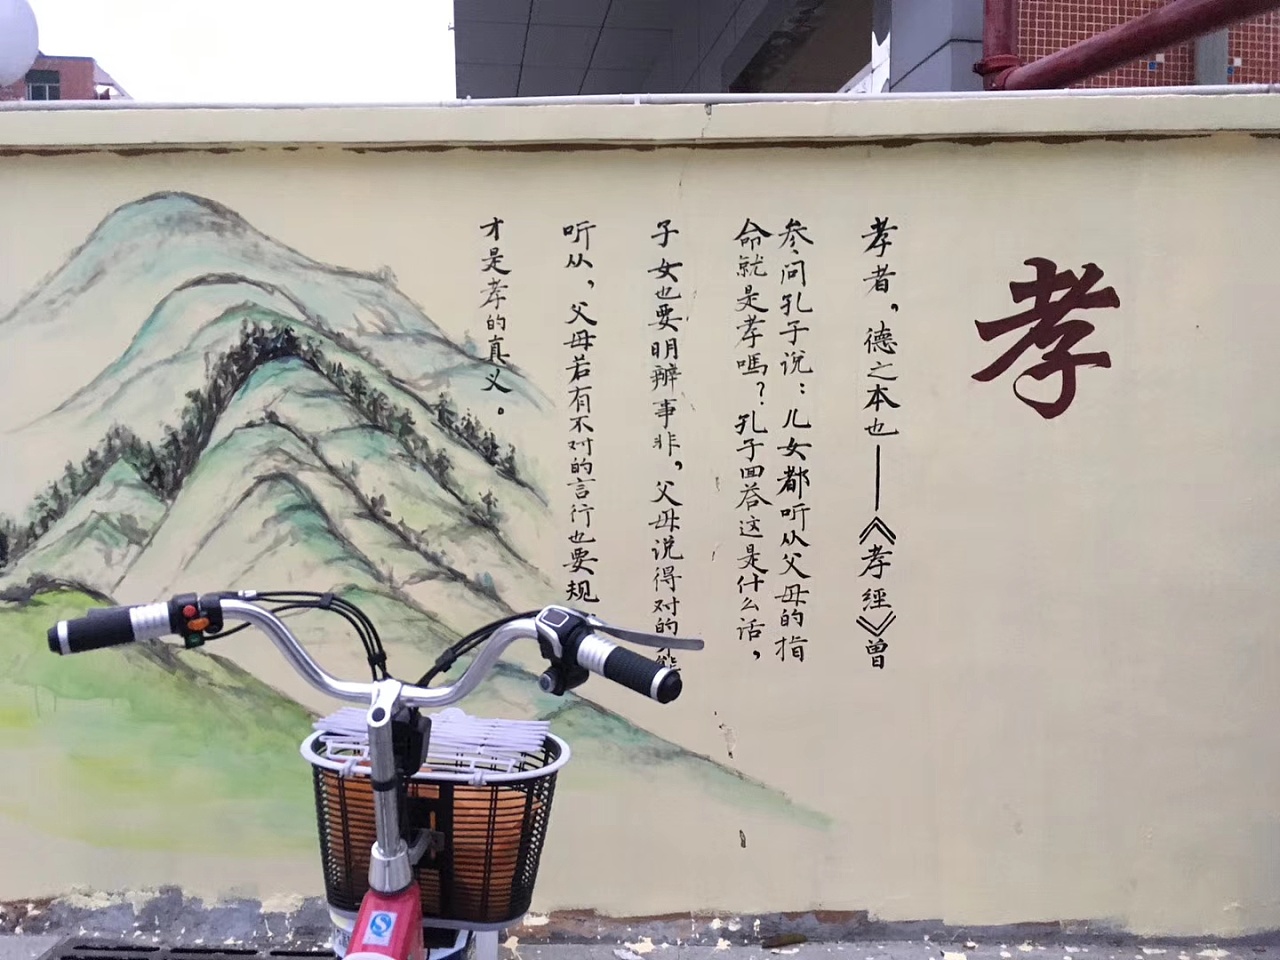 孝
孝者，德之本也——《孝經》曾
参问孔子说：儿女都听从父母的指
命就是孝嗎？孔子回答这是什么话，
子女也要明辨事非，父母说得对的
听从，父母若有不对的言行也要规
才是孝的真义。